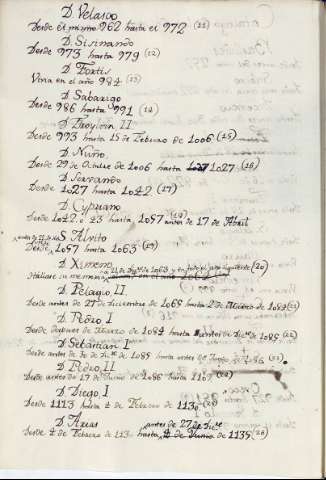 D. Velasco
Desde el mismo 962 hasta el 972 (11)
D. Sisinando
Desde 973 hasta 979 (12)
D. Fortis
Vivia en el año 984 (13)
D. Sabarigo
Desde 986 hasta 991 (14)
D. Froylan II
Desde 993 hasta 15 de Febrero de 1006 (15)
D. Nuño
Desde 29 de Octubre de 1006 hasta 1027 (16)
D. Servando
Desde 1027 hasta 1042 (17)
D. Cypriano
Desde 1042 o 43 hasta 1057 antes de 17 de Abril (18)
S. Alvito
Desde 1057 hasta 1063 (19)
D. Ximeno
Hallase su memoria 1063 y todo el año siguiente (20)
D. Pelagio II
Desde antes de 27 Diciembre de 1065 hasta de Marzo de 1084 (21)
D. Pedro I
Desde despues de Marzo de 1084 hasta antes de Dic.e de 1085 (22)
D. Sebastian I
Desde antes de de Dic.e de 1085 hasta antes de Junio de 1086
D. Pedro II
Desde antes de 17 de Junio de 1086 hasta
D. Diego I
Desde 1113 hasta 4 de Febrero de 1130
D. Arias
antes de 27 de Dic.e
Desde 4 de Febrero de 1130 hasta de 1135 (26)